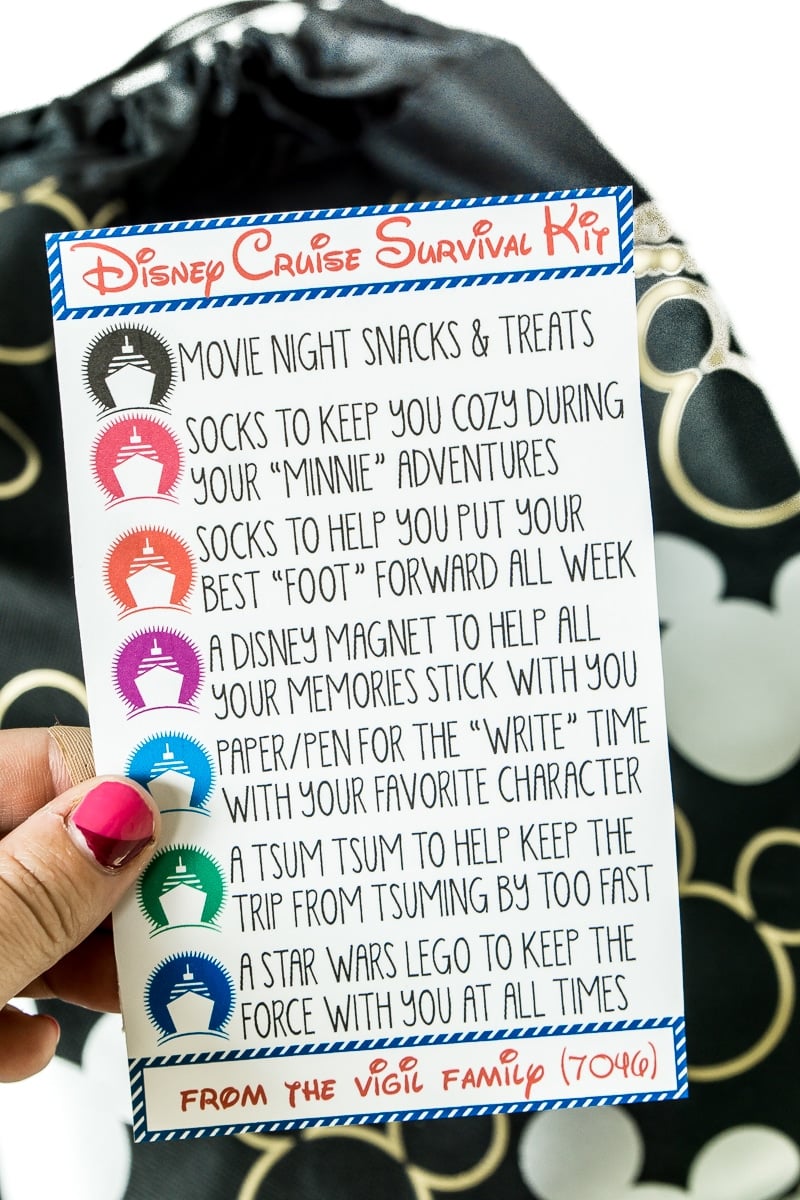 Disney Cruise Survival Kit
MOVIE NIGHT SNACKS & TREATS
SOCKS TO KEEP YOU COZY DURING
YOUR "MINNIE" ADVENTURES
SOCKS TO HELP YOU PUT YOUR
BEST "FOOT" FORWARD ALL WEEK
A DISNEY MAGNET TO HELP ALL
YOUR MEMORIES STICK WITH YOU
PAPER/PEN FOR THE "WRITE" TIME
WITH YOUR FAVORITE CHARACTER
A TSUM TSUM TO HELP KEEP THE
TRIP FROM TSUMING BY TOO FAST
A STAR WARS LEGO TO KEEP THE
FORCE WITH YOU AT ALL TIMES
FROM THE VIGIL FAMILY (7046)